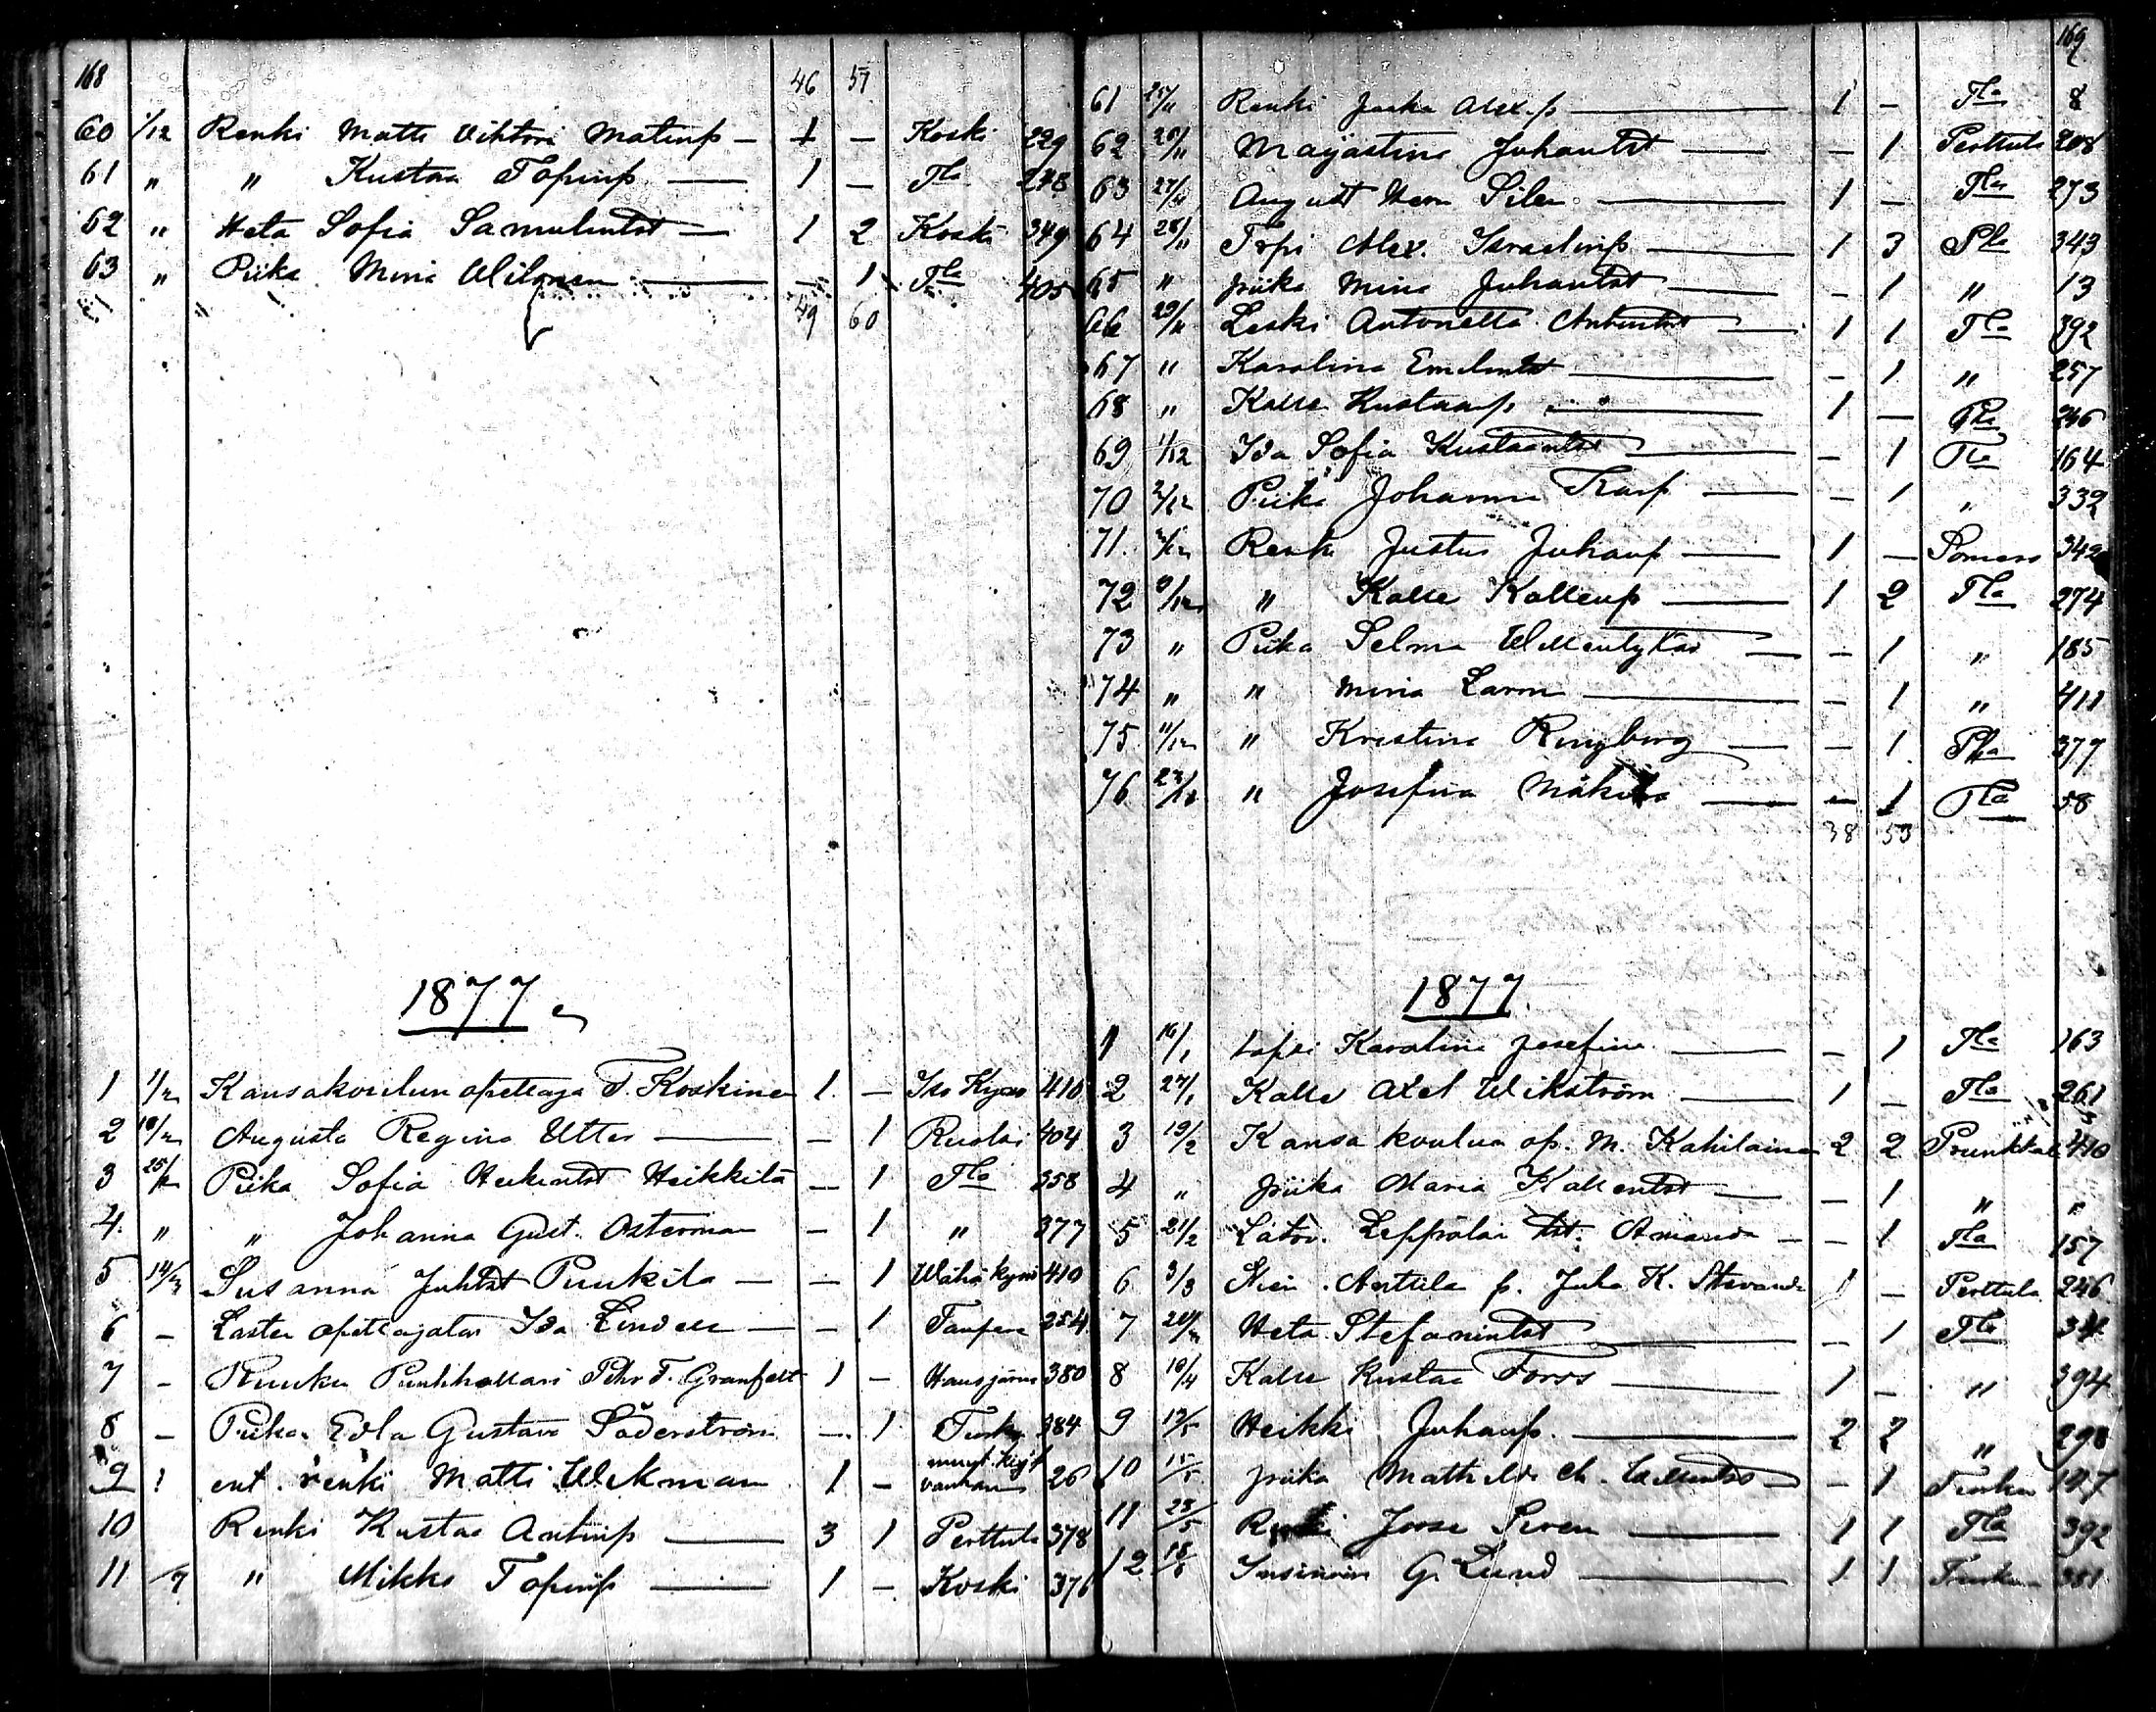 168
46 57
60 1/12 Renki Matti Viktori Matinp — 1 — Koski 229
61 " " Kustaa Topinp — 1 — Tla 278
62 " Heta Sofia Samulintst — 1 2 Koski 349
63 " Piika Miina — 1 Tla 405
49 60
1877
1 Kansakoulun opettaja T. Koskinen 1 — Iso Kyrö 410
2 Augusta Regina Utter — — 1 Rusko 404
3 Piika Sofia Heikintst Heikkilä — 1 Tla 358
4 " " Johanna Gust. Osterman — 1 " 377
5 Susanna Juhtst Puukila — — 1 Wähäkyrö 410
6 — Lasten opettajatar Ida Lindell — — 1 Tampere 254
7 — Ruukin Pehr F. Granfelt 1 — Hausjärvi 380
8 — Piika Edla Gustava Söderström — 1 Turku 384
9 ent. renki Matti Wekman 1 — 26
10 Renki Kustaa Antinp — 3 1 Perttula 378
11 " Mikko Topinp — 1 — Koski 376
169
61 Renki Juska Alex.p — 1 — Tla 8
62 Majastina Juhantst — — 1 Perttula 208
63 27/11 August Herm Silen — 1 — Tla 273
64 28/11 Torpi Alex. Israelinp — 1 3 Pla 343
65 " piika Miina Juhantst — — 1 " 13
66 29/11 Leski Antonetta Antintst — 1 1 Tla 392
67 " Karolina Emelintst — — 1 " 257
68 " Kalle Kustaanp — 1 — Pla 246
69 1/12 Ida Sofia Kustaantst — — 1 Tla 164
70 2/12 Piika Johanna Karp — — 1 " 332
71 Renki Justus Juhanp — 1 — Somero 342
72 9/12 " Kalle Kallenp — 1 2 Tla 274
73 " Piika Selma — — 1 " 185
74 " " Miina Larm — — 1 " 411
75 11/12 " Kristina Ringberg — — 1 Pla 377
76 23/12 " Josefina Mäkilä — — 1 Tla 58
38 53
1877
1 16/1 Karolina Josefina — — 1 Tla 163
2 27/1 Kalle Axel Wikström — 1 — Tla 261
3 19/2 Kansa koulun op. M. Kahilainen 2 2 Prunkkala 410
4 " piika Maria Kallentst — — 1 " "
5 21/2 Leppälän tst. Amanda — — 1 Tla 157
6 3/3 Anttila p. Juha K. 1 — Perttula 246
7 Heta Stefanintst — — 1 Tla
8 10/4 Kalle Kustaa Forss — 1 — " 394
9 Heikki Juhanp. — 2 2 " 298
10 15/5 piika Mathilda — 1 Turku 147
11 23/5 Renki Joose Siren — 1 1 Tla 392
12 Insinööri G. Lund — 1 1 Turku 381